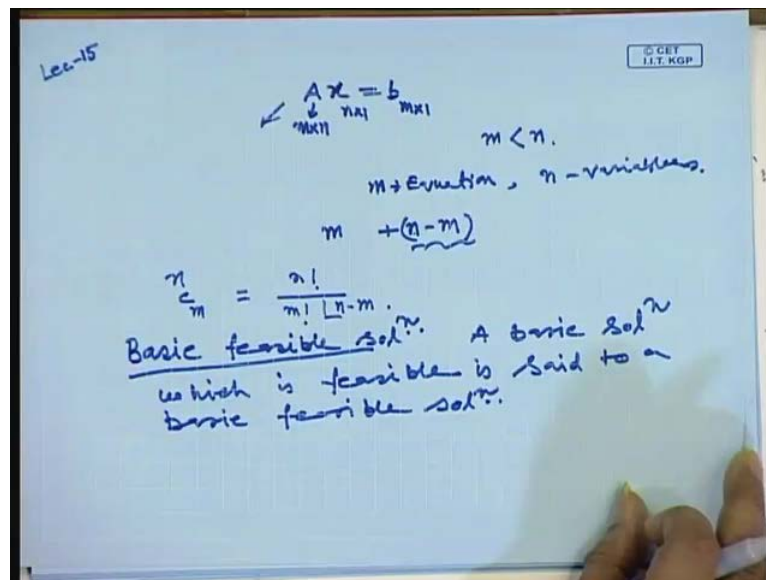 Lec-15
© CET
I.I.T. KGP
A x = b
m×n n×1 m×1
m < n.
m → Equation, n - variables.
m + (n - m)
ⁿCₘ = n! / m! ⌊n-m.
Basic feasible solⁿ. A basic solⁿ
which is feasible is said to a
basic feasible solⁿ.